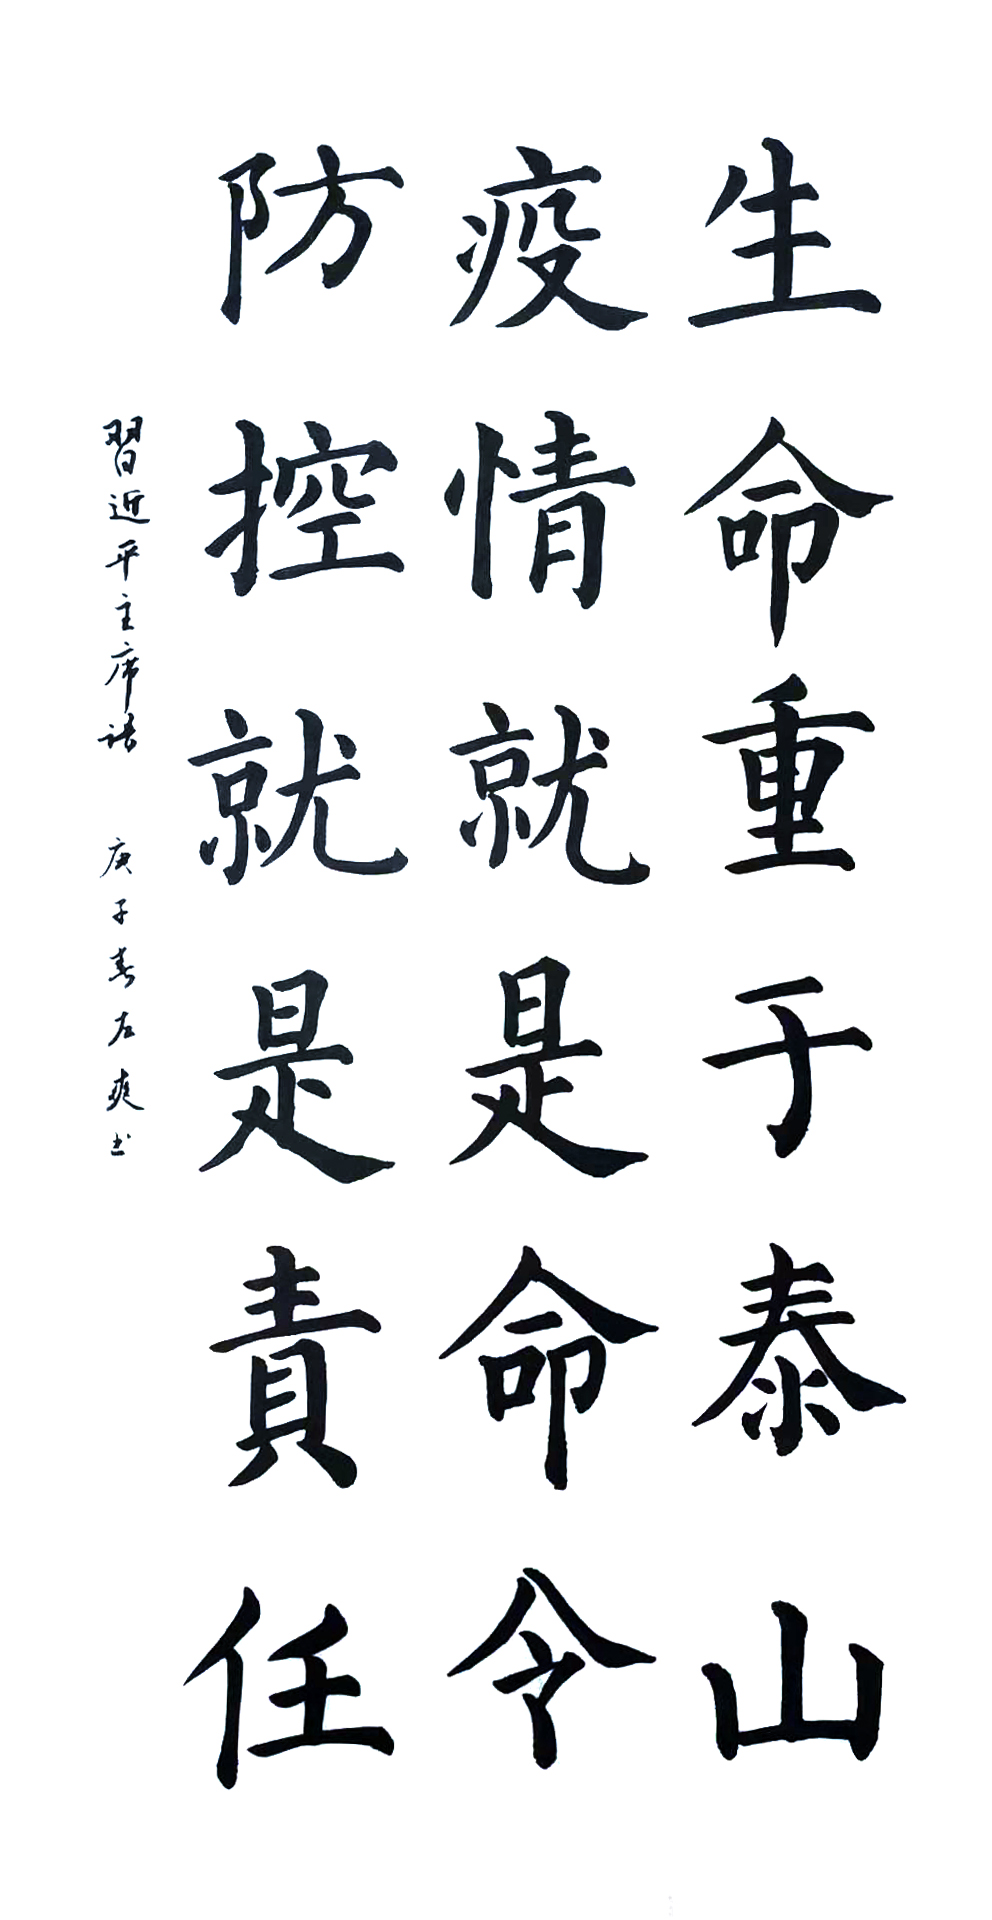 生命重于泰山
疫情就是命令
防控就是責任
習近平主席语 庚子春左爽书